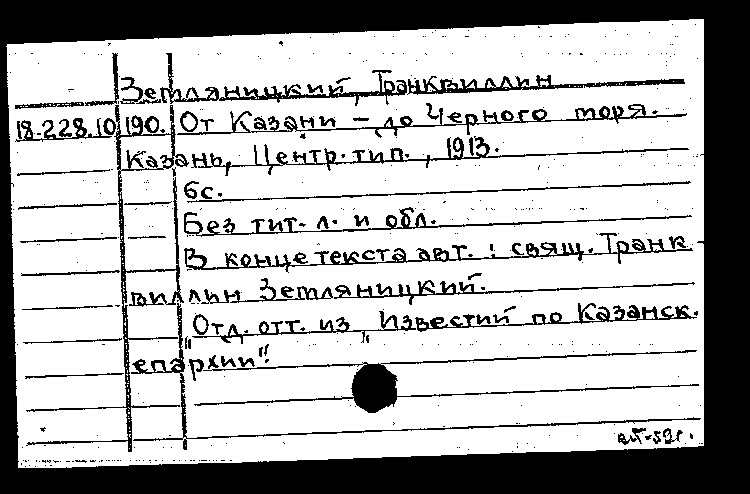 Земляницкий, Транквиллин
18-228.10 190. От Казани – до Черного моря.
Казань, Центр. тип., 1913.
6с.
Без тит. л. и обл.
В конце текста авт.: свящ. Транк-
виллин Земляницкий.
"Отд. отт. из „Известий по Казанск.
епархии".